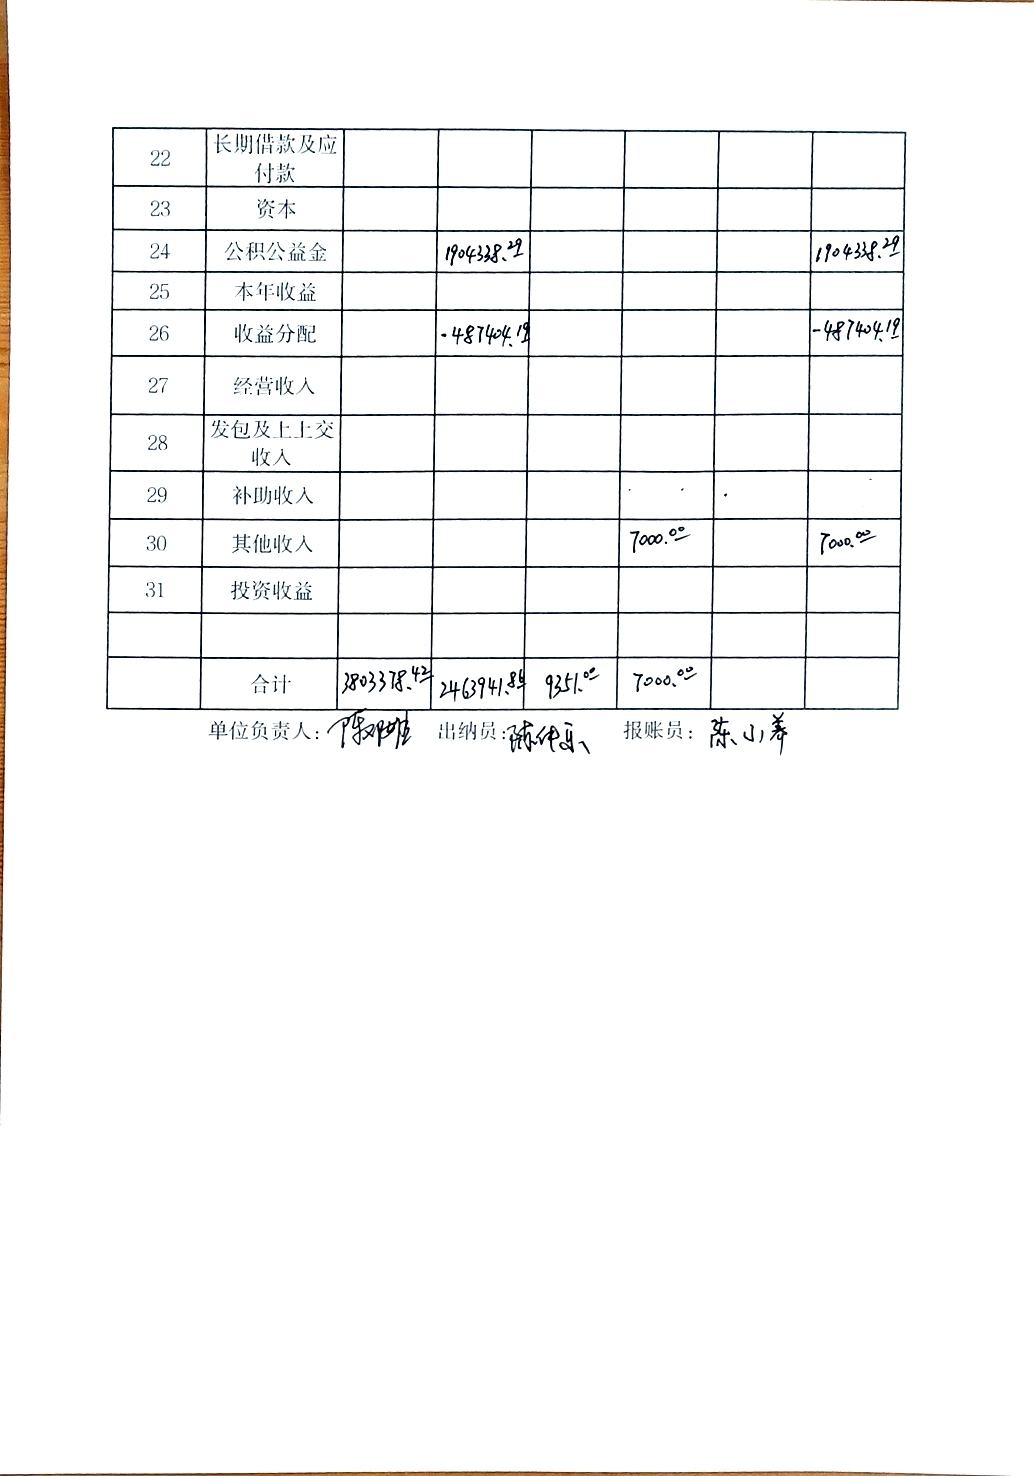 22 长期借款及应
付款
23 资本
24 公积公益金 1904338.29 1904338.29
25 本年收益
26 收益分配 -487404.19 -487404.19
27 经营收入
28 发包及上上交
收入
29 补助收入
30 其他收入 7000.00 7000.00
31 投资收益
合计 3803378.42 2463941.86 9351.00 7000.00
单位负责人: 陈 出纳员: 陈 报账员: 陈小养